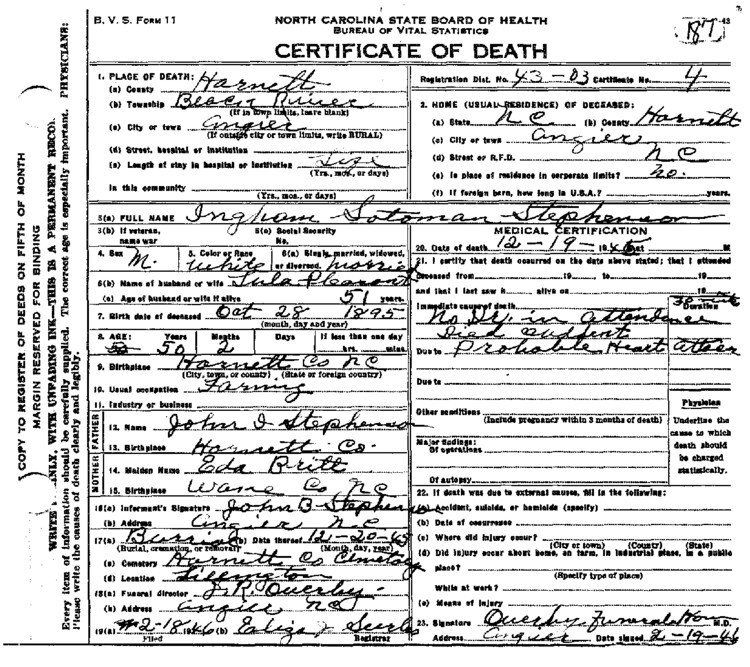 B. V. S. FORM 11
NORTH CAROLINA STATE BOARD OF HEALTH
BUREAU OF VITAL STATISTICS
187
CERTIFICATE OF DEATH
COPY TO REGISTER OF DEEDS ON FIFTH OF MONTH
MARGIN RESERVED FOR BINDING
WITH UNFADING INK—THIS IS A PERMANENT RECORD.
Every item of information should be carefully supplied. The correct age is especially important. PHYSICIANS:
Please write the causes of death clearly and legibly.
1. PLACE OF DEATH:
(a) County Harnett
(b) Township Black River
(If in town limits, leave blank)
(c) City or town Angier
(If outside city or town limits, write RURAL)
(d) Street, hospital or institution
(e) Length of stay in hospital or institution Life
(Yrs., mos., or days)
In this community
(Yrs., mos., or days)
Registration Dist. No. 43-03 Certificate No. 4
2. HOME (USUAL RESIDENCE) OF DECEASED:
(a) State N C (b) County Harnett
(c) City or town Angier
(d) Street or R.F.D. N C
(e) Is place of residence in corporate limits? no.
(f) If foreign born, how long in U.S.A.? years.
3(a) FULL NAME Ingham Stephenson
3(b) If veteran, name war
3(c) Social Security No.
4. Sex M.
5. Color or Race white
6(a) Single, married, widowed, or divorced. married
6(b) Name of husband or wife Lula Pleasant
(c) Age of husband or wife if alive 51 years.
7. Birth date of deceased Oct 28 1895
(month, day and year)
8. AGE: Years Months Days If less than one day
50 2 hrs. mins.
9. Birthplace Harnett Co NC
(City, town, or county) (State or foreign country)
10. Usual occupation Farming
11. Industry or business
FATHER
12. Name John I Stephenson
13. Birthplace Harnett Co.
MOTHER
14. Maiden Name Eda Britt
15. Birthplace Wane Co NC
16(a) Informant's Signature John B Stephenson
(b) Address Angier N.C
17(a) Burrial (b) Date thereof 12-20-45
(Burial, cremation, or removal) (Month, day, year)
(c) Cemetery Harnett Co Cemetery
(d) Location Lillington
18(a) Funeral director J. R. Overby
(b) Address Angier NC
19(a) 2-18 1946 (b) Eliza J
Filed Registrar
MEDICAL CERTIFICATION
20. Date of death 12-19-1945 M
21. I certify that death occurred on the date above stated; that I attended
deceased from 19 to 19
and that I last saw h alive on 19
Immediate cause of death Duration
No Dr. in attendance
Died
Due to Probable Heart Attack
Due to
Other conditions
(Include pregnancy within 3 months of death)
Major findings:
Of operations
Of autopsy
Physician
Underline the cause to which death should be charged statistically.
22. If death was due to external causes, fill in the following:
(a) Accident, suicide, or homicide (specify)
(b) Date of occurrence
(c) Where did injury occur?
(City or town) (County) (State)
(d) Did injury occur about home, on farm, in industrial place, in a public
place?
(Specify type of place)
While at work?
(e) Means of injury
23. Signature Overby Funeral Home M.D.
Address Angier Date signed 2-19-46